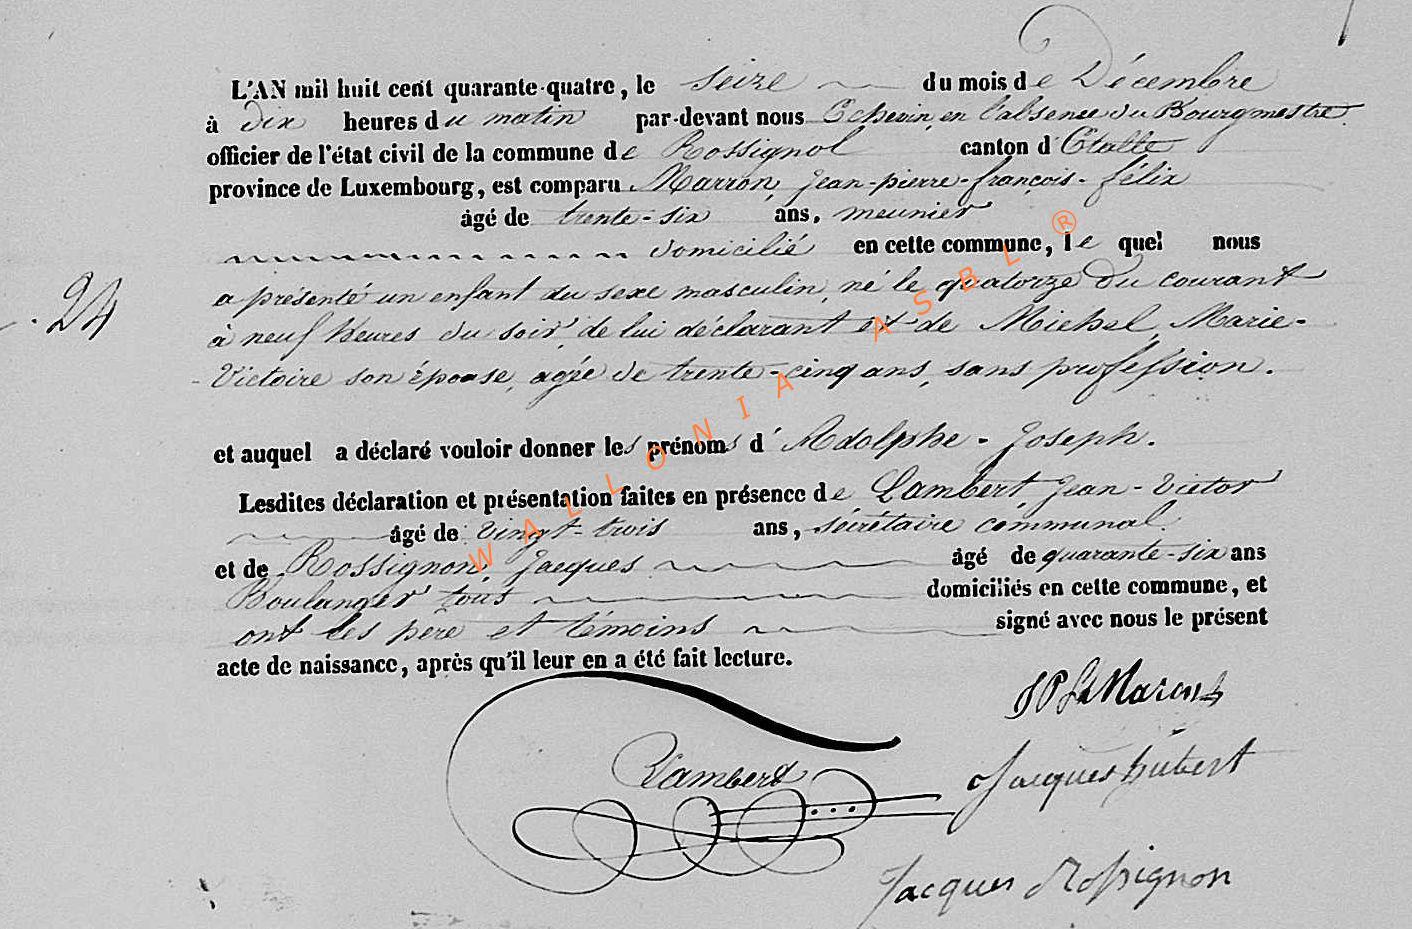 L'AN mil huit cent quarante-quatre, le seize du mois de Décembre
à dix heures du matin par-devant nous Echevin, en l'absence du Bourgmestre
officier de l'état civil de la commune de Rossignol canton d'Etalle
province de Luxembourg, est comparu Marron, Jean-pierre-françois-félix
âgé de trente-six ans, meunier
domicilié en cette commune, le quel nous
a présenté un enfant du sexe masculin, né le quatorze du courant
24
à neuf heures du soir, de lui déclarant et de Michel, Marie-
Victoire son épouse, agée de trente-cinq ans, sans profession.
et auquel a déclaré vouloir donner les prénoms d'Adolphe-Joseph.
Lesdites déclaration et présentation faites en présence de Lambert, Jean-Victor
âgé de vingt-trois ans, sécrétaire communal.
et de Rossignon, Jacques âgé de quarante-six ans
Boulanger tous domiciliés en cette commune, et
ont les père et témoins signé avec nous le présent
acte de naissance, après qu'il leur en a été fait lecture.
Lambert
Jacques hubert
Jacques Rossignon
WALLONIA ASBL ®